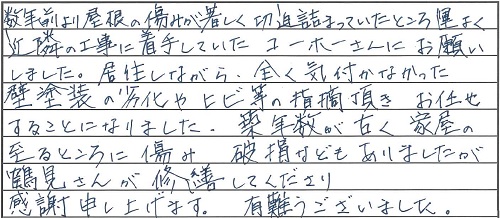 数年前より屋根の傷みが著しく切迫詰まっていたところ運よく
近隣の工事に着手していたユーホーさんにお願い
しました。居住しながら、全く気付かなかった
壁塗装の劣化やヒビ等の指摘頂き お任せ
することになりました。築年数が古く 家屋の
至るところに傷み 破損などもありましたが
鶴見さんが修繕してくださり
感謝申し上げます。 有難うございました。